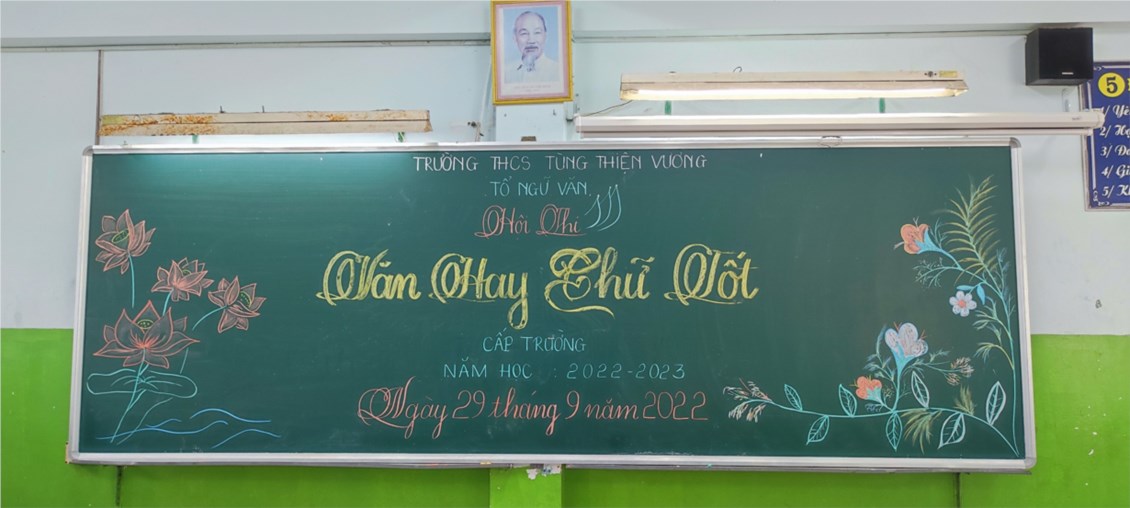 TRƯỜNG THCS TÙNG THIỆN VƯƠNG
TỔ NGỮ VĂN
Hội Thi
Văn Hay Chữ Tốt
CẤP TRƯỜNG
NĂM HỌC : 2022-2023
Ngày 29 tháng 9 năm 2022
5
1/ Yê
2/ Họ
3/ Đo
4/ Gi
5/ Kh